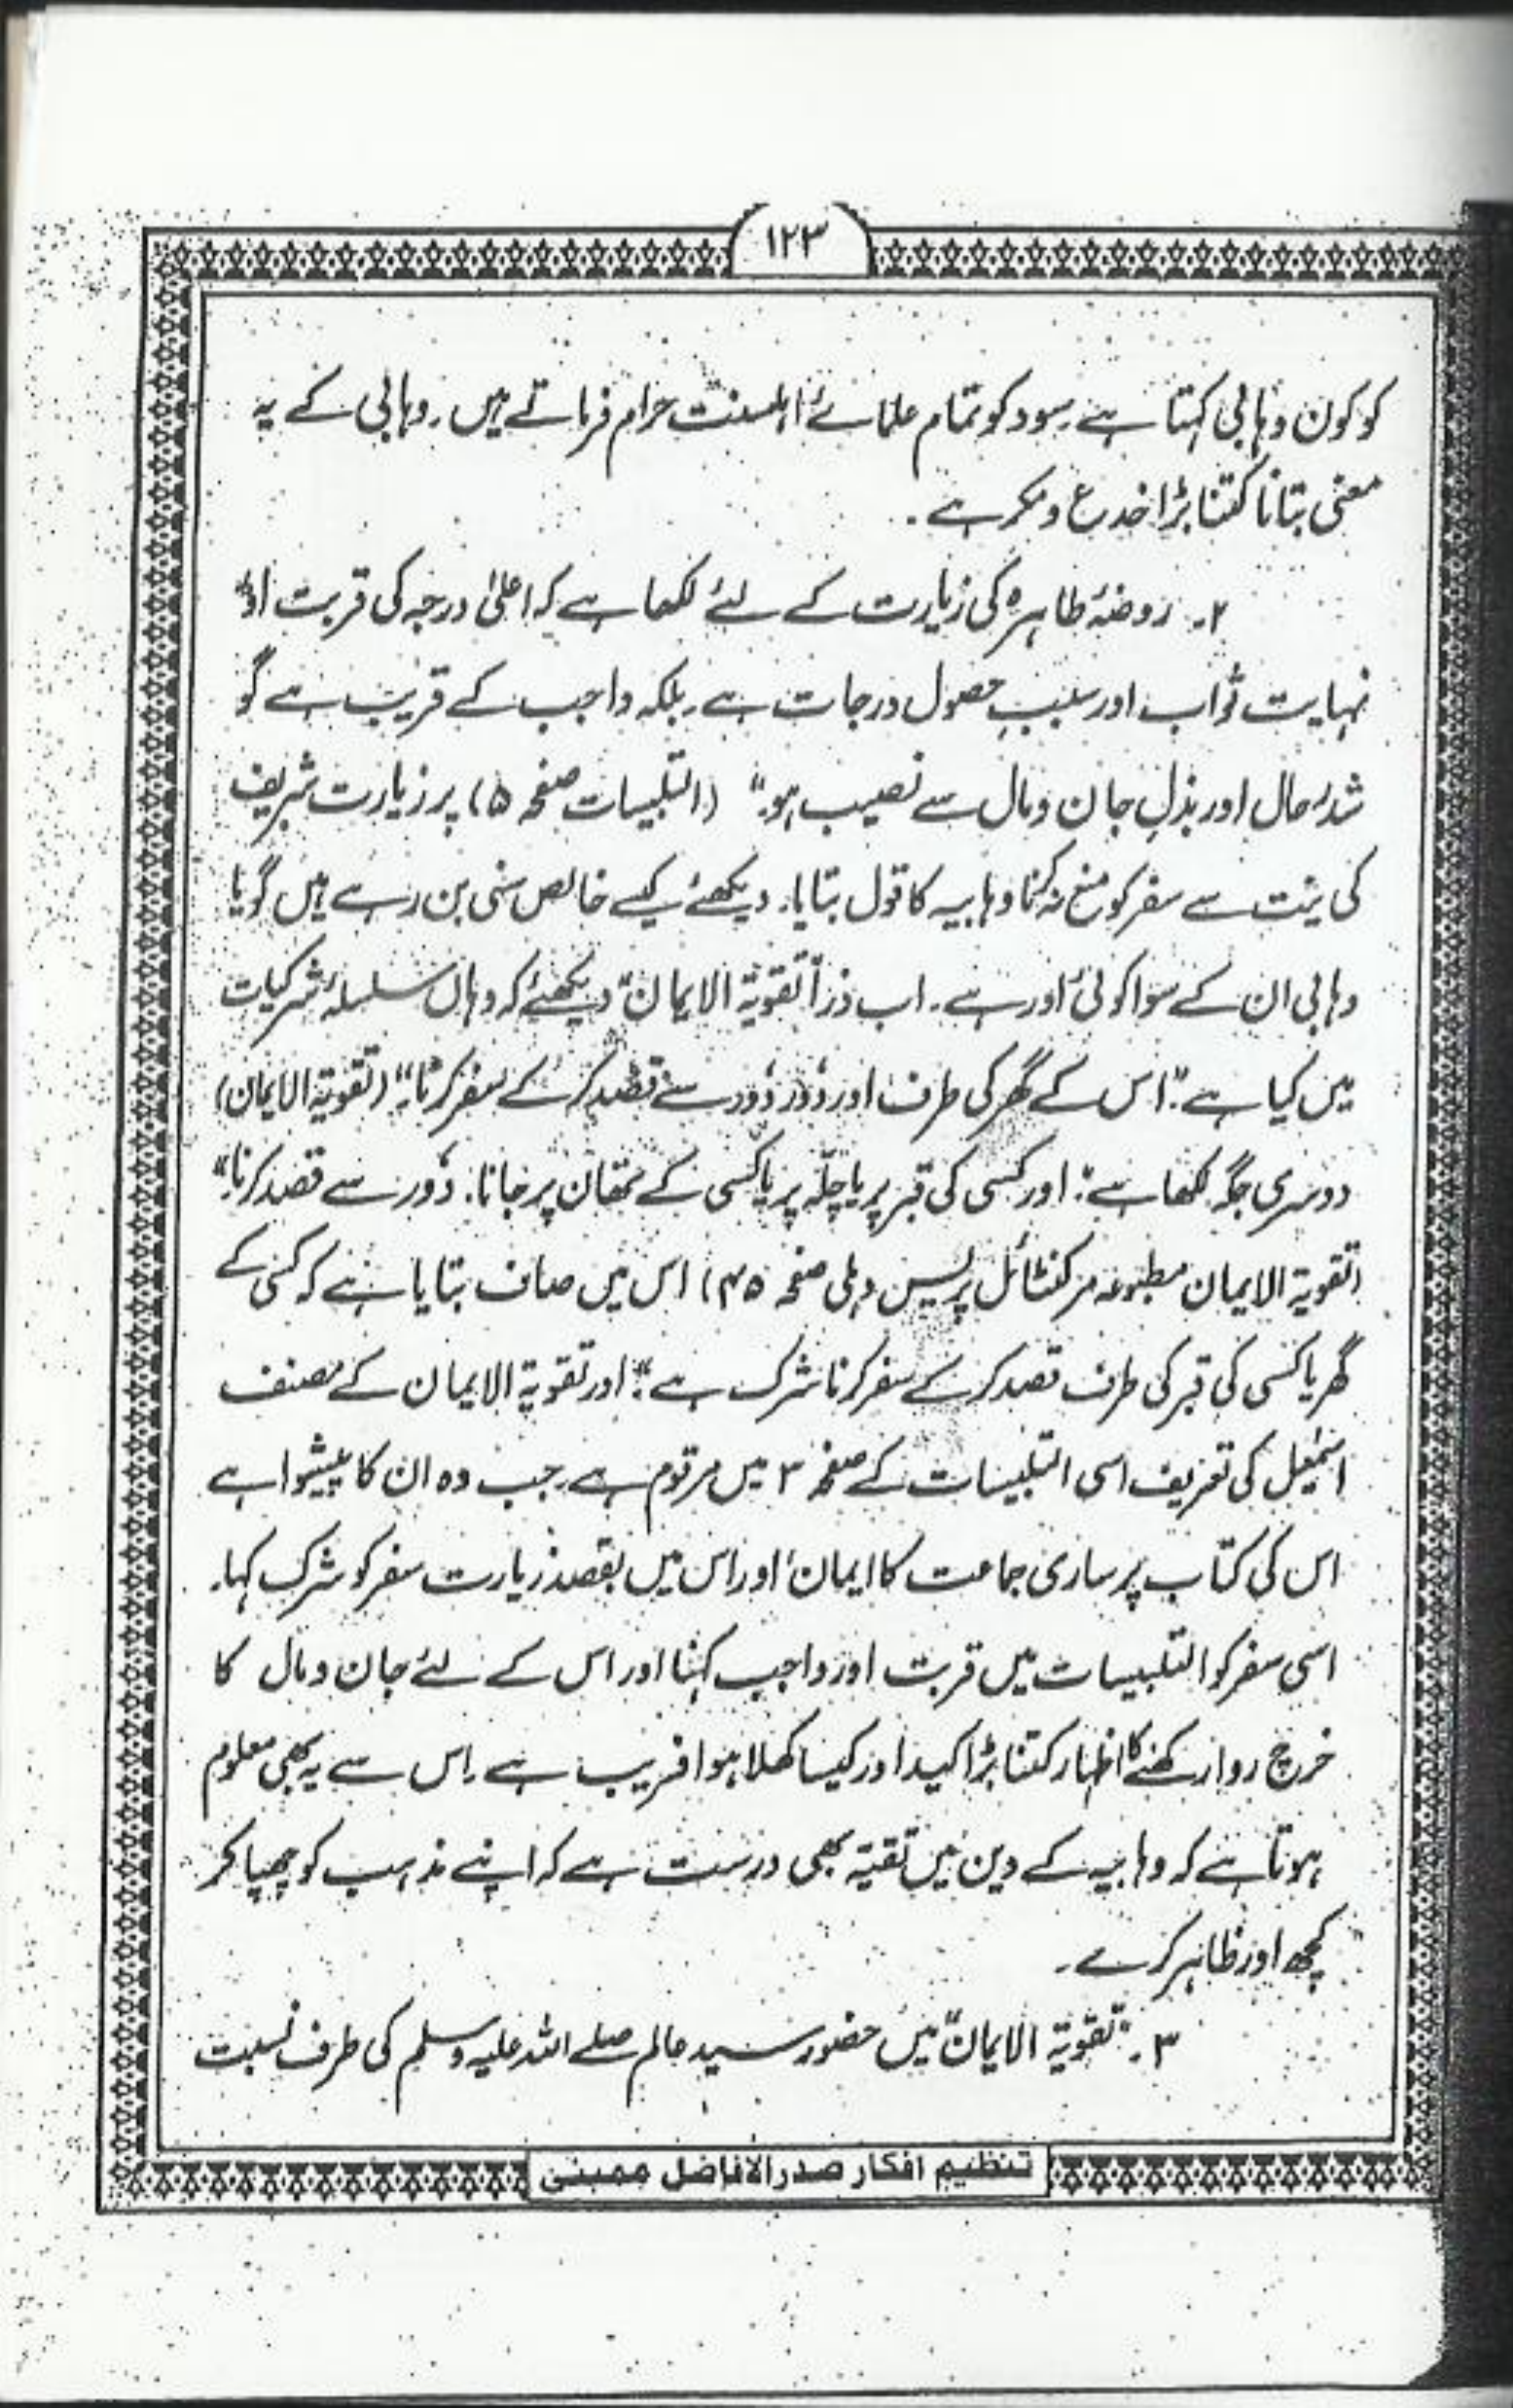 ۱۲۳
کو کون وہابی کہتا ہے۔ سود کو تمام علمائے اہلسنت حرام فرماتے ہیں۔ وہابی کے یہ
معنی بتانا کتنا بڑا خدع و مکر ہے۔
۲۔ روضۂ طاہرہ کی زیارت کے لئے لکھا ہے کہ اعلیٰ درجہ کی قربت اور
نہایت ثواب اور سببِ حصول درجات ہے۔ بلکہ واجب کے قریب ہے گو
شدرحال اور بذلِ جان و مال سے نصیب ہو۔" (التلبیسات صفحہ ۵) پر زیارت شریف
کی نیت سے سفر کو منع کہنا وہابیہ کا قول بتایا۔ دیکھئے کیسے خالص سنی بن رہے ہیں گویا
وہابی ان کے سوا کوئی اور ہے۔ اب ذرا "تقویۃ الایمان" دیکھئے کہ وہاں سلسلۂ شرکیات
میں کیا ہے: "اس کے گھر کی طرف اور دُور دُور سے قصد کر کے سفر کرنا۔" (تقویۃ الایمان)
دوسری جگہ لکھا ہے: "اور کسی کی قبر پر یا چلّہ پر یا کسی کے تھان پر جانا۔ دُور سے قصد کرنا۔"
(تقویۃ الایمان مطبوعہ مرکنٹائل پریس دہلی صفحہ ۴۵) اس میں صاف بتایا ہے کہ کسی کے
گھر یا کسی کی قبر کی طرف قصد کر کے سفر کرنا شرک ہے"۔ اور تقویۃ الایمان کے مصنف
اسمٰعیل کی تعریف اسی التلبیسات کے صفحہ ۳ میں مرقوم ہے۔ جب وہ ان کا پیشوا ہے
اس کی کتاب پر ساری جماعت کا ایمان' اور اس میں بقصد زیارت سفر کو شرک کہا۔
اسی سفر کو التلبیسات میں قربت اور واجب کہنا اور اس کے لئے جان و مال کا
خرچ روا رکھنے کا اظہار کتنا بڑا کید اور کیسا کھلا ہوا فریب ہے۔ اس سے یہ بھی معلوم
ہوتا ہے کہ وہابیہ کے دین میں تقیّہ بھی درست ہے کہ اپنے مذہب کو چھپا کر
کچھ اور ظاہر کرے۔
۳۔ "تقویۃ الایمان" میں حضور سید عالم صلے اللہ علیہ وسلم کی طرف نسبت
تنظیم افکار صدرالافاضل ممبئی